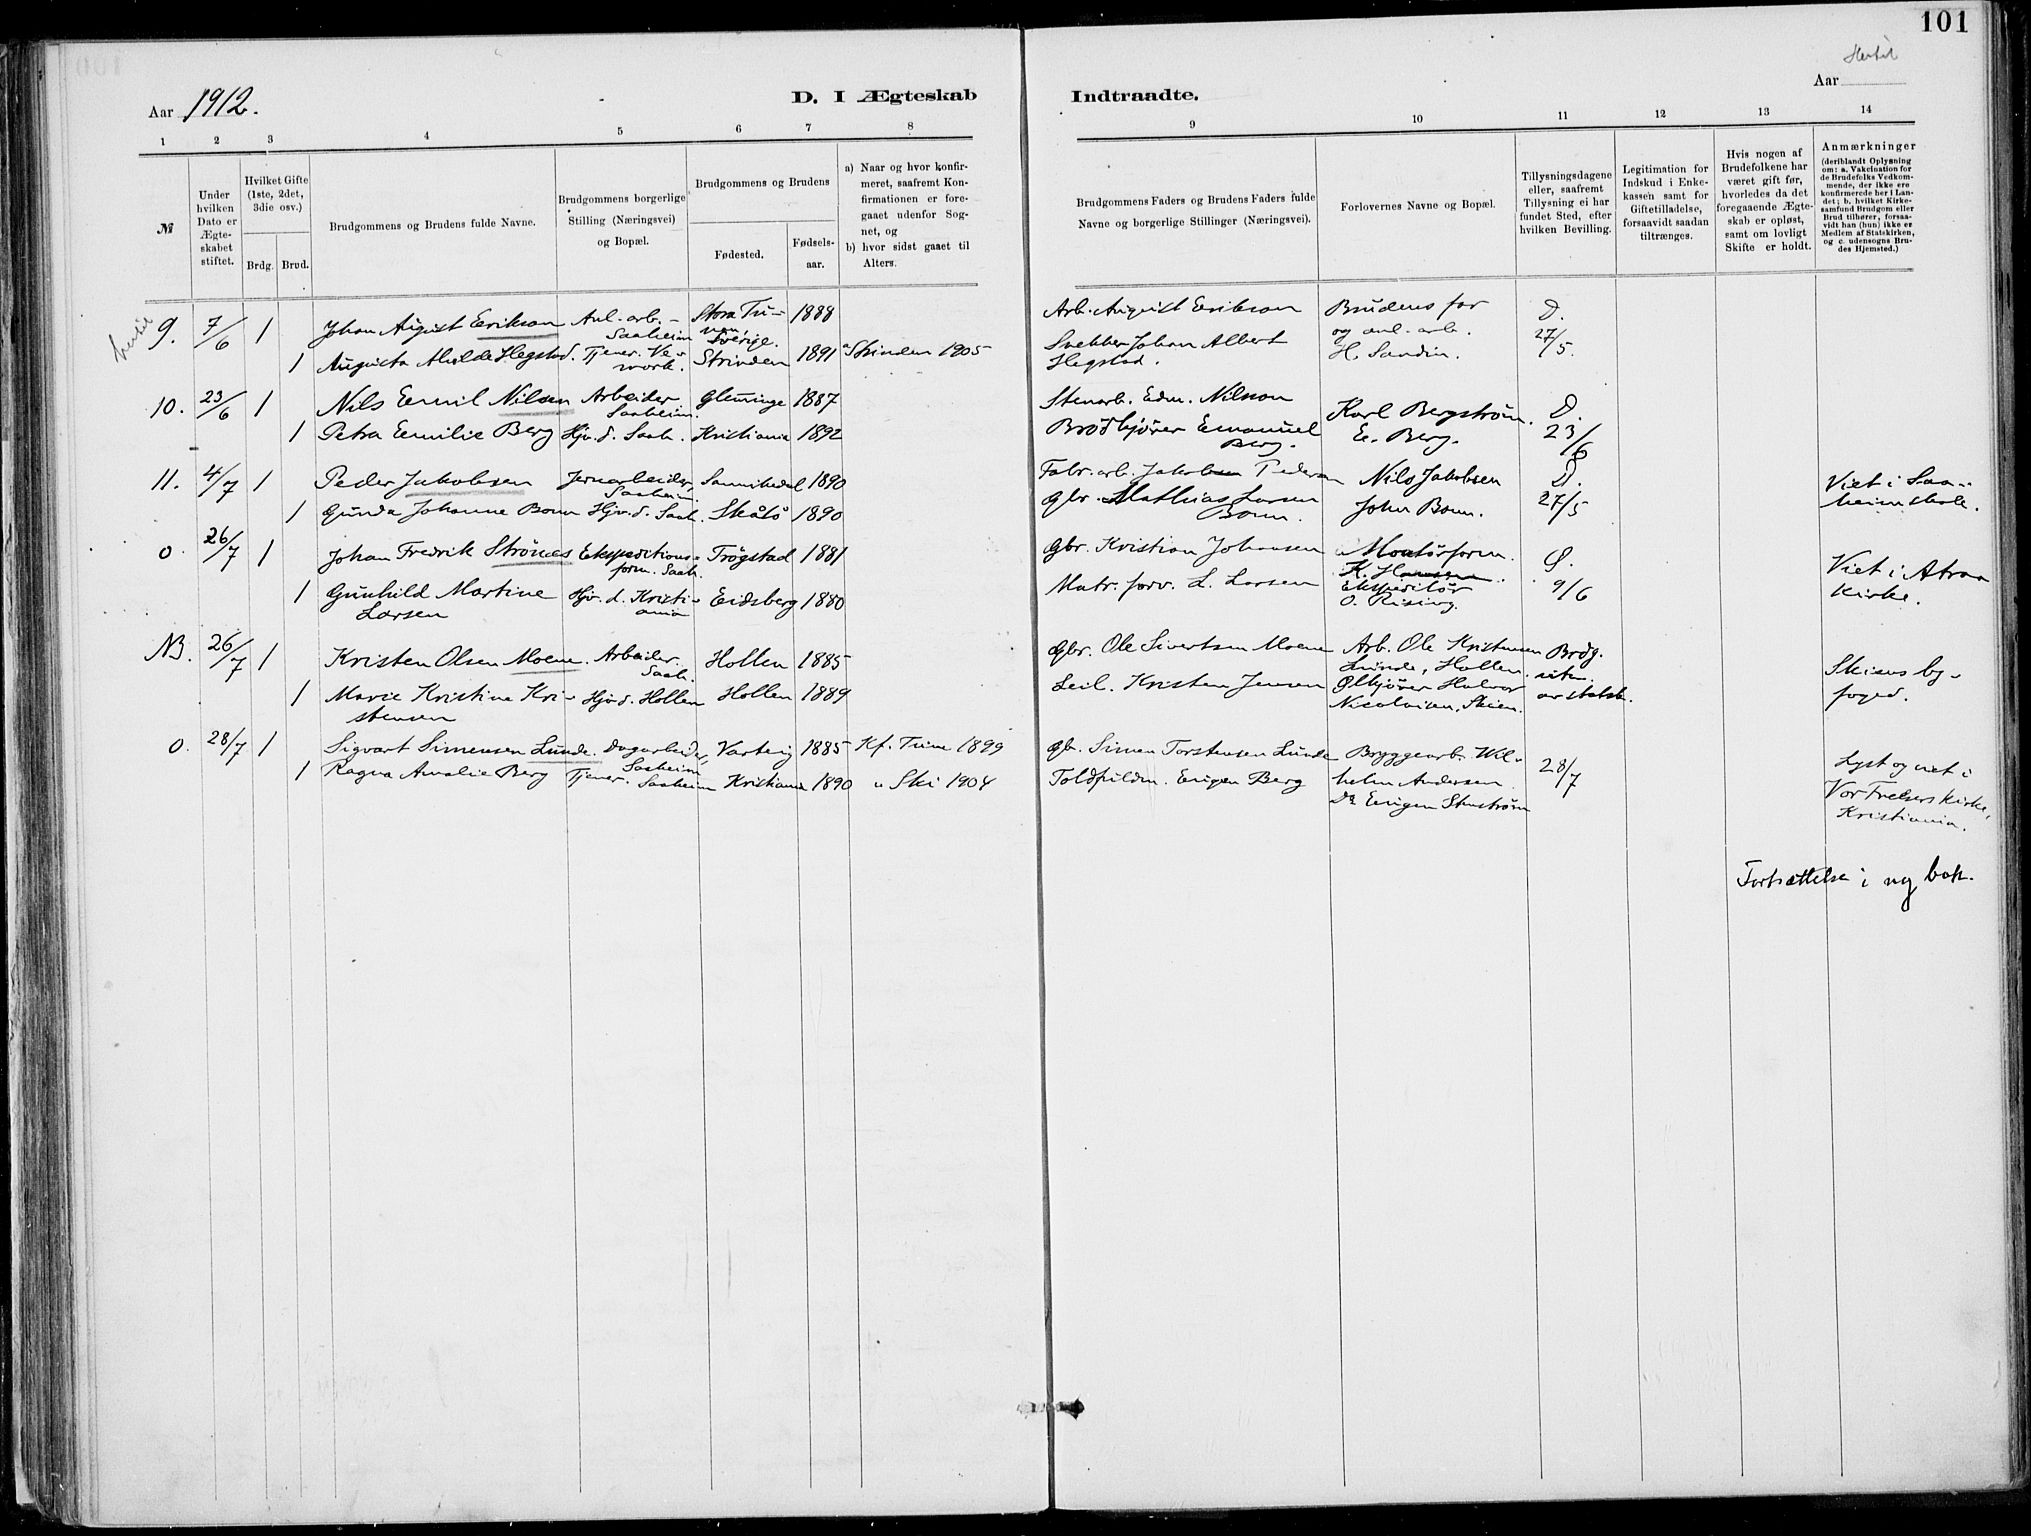 101
Hertil
Aar 1912.
D. I Ægteskab
Indtraadte.
Aar
1 2 3 4 5 6 7 8
9 10 11 12 13 14
№
Under
hvilken
Dato er
Ægte-
skabet
stiftet.
Hvilket Gifte
(1ste, 2det,
3die osv.)
Brdg.
Brud.
Brudgommens og Brudens fulde Navne.
Brudgommens borgerlige
Stilling (Næringsvei)
og Bopæl.
Brudgommens og Brudens
Fødested.
Fødsels-
aar.
a) Naar og hvor konfir-
meret, saafremt Kon-
firmationen er fore-
gaaet udenfor Sog-
net, og
b) hvor sidst gaaet til
Alters.
Brudgommens Faders og Brudens Faders fulde
Navne og borgerlige Stillinger (Næringsvei).
Forlovernes Navne og Bopæl.
Tillysningsdagene
eller, saafremt
Tillysning ei har
fundet Sted, efter
hvilken Bevilling.
Legitimation for
Indskud i Enke-
kassen samt for
Giftetilladelse,
forsaavidt saadan
tiltrænges.
Hvis nogen af
Brudefolkene har
været gift før,
hvorledes da det
foregaaende Ægte-
skab er opløst,
samt om lovligt
Skifte er holdt.
Anmærkninger
(deriblandt Oplysning
om: a. Vakcination for
de Brudefolks Vedkom-
mende, der ikke ere
konfirmerede her i Lan-
det; b. hvilket Kirke-
samfund Brudgom eller
Brud tilhører, forsaa-
vidt han (hun) ikke er
Medlem af Statskirken,
og c. udensogns Bru-
des Hjemsted.)
hertil
9. 7/6 1 Johan August Erikson Anl. arb. Saaheim Stora Tu-
na, Sverige. 1888
Arb. August Erikson
Brudens far
og anl. arb.
H. Sandin.
D.
27/5.
1 Augusta Hegstad. Tjener. Ve-
mork. Strinden 1891 Strinden 1905
Johan Albert
Hegstad.
10. 23/6 1 Nils Eemil Nilsen Arbeider
Saaheim. Glemminge 1887
Stenarb. Edm. Nilson
Karl Bergstrøm.
D.
1 Petra Eemilie Berg Hjv. d. Saah. Kristiania 1892
Brødkjører Emanuel
Berg.
E. Berg.
23/6
11. 4/7 1 Peder Jakobsen Jernarbeider,
Saaheim. Sannikedal 1890
Fabr. arb. Jakobsen Pedersen
Nils Jakobsen
D.
Viet i Saa-
heim skole.
1 Gunda Johanne Bonn Hjv. d. Saah. Skåtø 1890
Gbr. Mathias Larsen
Bonn.
John Bonn.
27/5
o 26/7 1 Johan Fredrik Strönes Ekspeditions-
form. Saah. Trøgstad 1881
Gbr. Kristian Johansen
Montørform.
K. Hansen.
Ø.
Viet i Atraa
kirke.
1 Gunhild Martine
Larsen Hjv. d. Kristi-
ania Eidsberg 1880
Matr. forv. L. Larsen
Ekspeditør
O. Rising.
9/6
NB. 26/7 1 Kristen Olsen Moene. Arbeider.
Saah. Hollen 1885
Gbr. Ole Sivertsen Moene
Arb. Ole Kristensen
Lunde, Hollen.
Brdg.
Skiens by-
foged.
1 Marie Kristine Kri-
stensen Hjv. d. Hollen Hollen 1889
Leil. Kristen Jensen
Ølkjører Halvor
Nicolaisen, Skien.
o. 28/7 1 Sigvart Simensen Lunde. Dagarbeider,
Saaheim Varteig 1885 Kf. Tune 1899
Gbr. Simen Torstensen Lunde
Bryggearb. Wil-
helm Andersen
28/7
Lyst og viet i
Vor Frelsers kirke,
Kristiania.
1 Ragna Amalie Berg Tjener. Saaheim Kristiania 1890 " Ski 1904
Eugen Berg
Do Eugen Stenstrøm
Fortsættelse i ny bok.